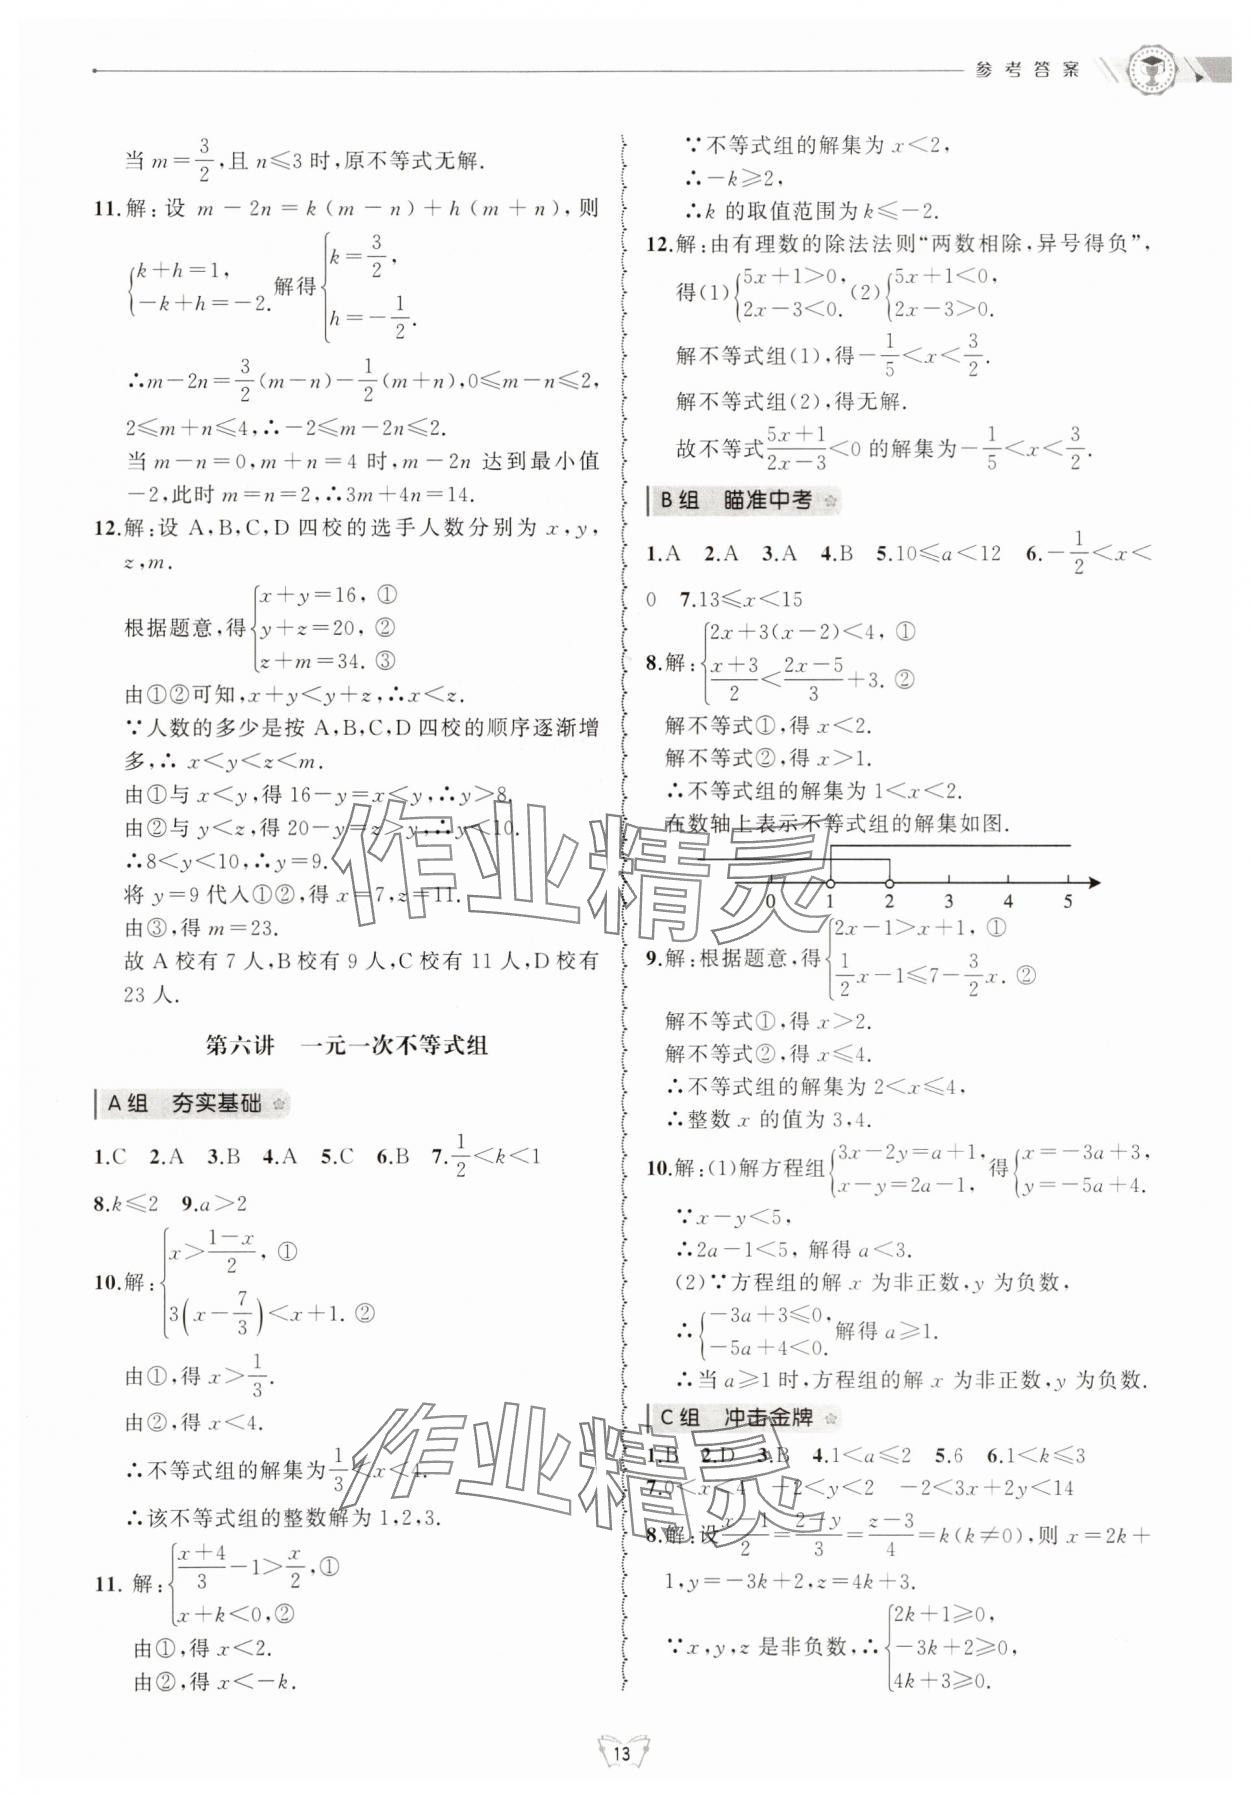 参考答案
当 m＝3/2,且 n≤3 时,原不等式无解.
11.解:设 m－2n＝k(m－n)＋h(m＋n),则
{k＋h＝1, －k＋h＝－2. 解得 {k＝3/2, h＝－1/2.
∴m－2n＝3/2(m－n)－1/2(m＋n),0≤m－n≤2,
2≤m＋n≤4,∴－2≤m－2n≤2.
当 m－n＝0,m＋n＝4 时,m－2n 达到最小值
－2,此时 m＝n＝2,∴3m＋4n＝14.
12.解:设 A,B,C,D 四校的选手人数分别为 x,y,
z,m.
根据题意,得 {x＋y＝16, ① y＋z＝20, ② z＋m＝34. ③
由①②可知,x＋y＜y＋z,∴x＜z.
∵人数的多少是按 A,B,C,D 四校的顺序逐渐增
多,∴ x＜y＜z＜m.
由①与 x＜y,得 16－y＝x＜y,∴y＞8.
由②与 y＜z,得 20－y＝z＞y,∴y＜10.
∴8＜y＜10,∴y＝9.
将 y＝9 代入①②,得 x＝7,z＝11.
由③,得 m＝23.
故 A 校有 7 人,B校有 9 人,C校有 11 人,D校有
23 人.
第六讲 一元一次不等式组
A组 夯实基础
1.C 2.A 3.B 4.A 5.C 6.B 7.1/2＜k＜1
8.k≤2 9.a＞2
10.解: {x＞(1－x)/2, ① 3(x－7/3)＜x＋1. ②
由①,得 x＞1/3.
由②,得 x＜4.
∴不等式组的解集为 1/3＜x＜4.
∴该不等式组的整数解为 1,2,3.
11. 解: {(x＋4)/3－1＞x/2,① x＋k＜0,②
由①,得 x＜2.
由②,得 x＜－k.
∵不等式组的解集为 x＜2,
∴－k≥2,
∴k 的取值范围为 k≤－2.
12.解:由有理数的除法法则“两数相除,异号得负”,
得(1){5x＋1＞0, 2x－3＜0. (2){5x＋1＜0, 2x－3＞0.
解不等式组(1),得－1/5＜x＜3/2.
解不等式组(2),得无解.
故不等式(5x＋1)/(2x－3)＜0 的解集为－1/5＜x＜3/2.
B组 瞄准中考
1.A 2.A 3.A 4.B 5.10≤a＜12 6.－1/2＜x＜
0 7.13≤x＜15
8.解: {2x＋3(x－2)＜4, ① (x＋3)/2＜(2x－5)/3＋3. ②
解不等式①,得 x＜2.
解不等式②,得 x＞1.
∴不等式组的解集为 1＜x＜2.
在数轴上表示不等式组的解集如图.
0 1 2 3 4 5
9.解:根据题意,得 {2x－1＞x＋1, ① 1/2x－1≤7－3/2x. ②
解不等式①,得 x＞2.
解不等式②,得 x≤4.
∴不等式组的解集为 2＜x≤4,
∴整数 x 的值为 3,4.
10.解:(1)解方程组 {3x－2y＝a＋1, x－y＝2a－1, 得 {x＝－3a＋3, y＝－5a＋4.
∵x－y＜5,
∴2a－1＜5, 解得 a＜3.
(2)∵方程组的解 x 为非正数,y 为负数,
∴{－3a＋3≤0, －5a＋4＜0. 解得 a≥1.
∴当 a≥1 时,方程组的解 x 为非正数,y 为负数.
C组 冲击金牌
1.B 2.D 3.B 4.1＜a≤2 5.6 6.1＜k≤3
7.0＜x＜4 －2＜y＜2 －2＜3x＋2y＜14
8.解:设(x－1)/2＝(2－y)/3＝(z－3)/4＝k(k≠0),则 x＝2k＋
1,y＝－3k＋2,z＝4k＋3.
∵x,y,z 是非负数,∴{2k＋1≥0, －3k＋2≥0, 4k＋3≥0.
13
作业精灵
作业精灵